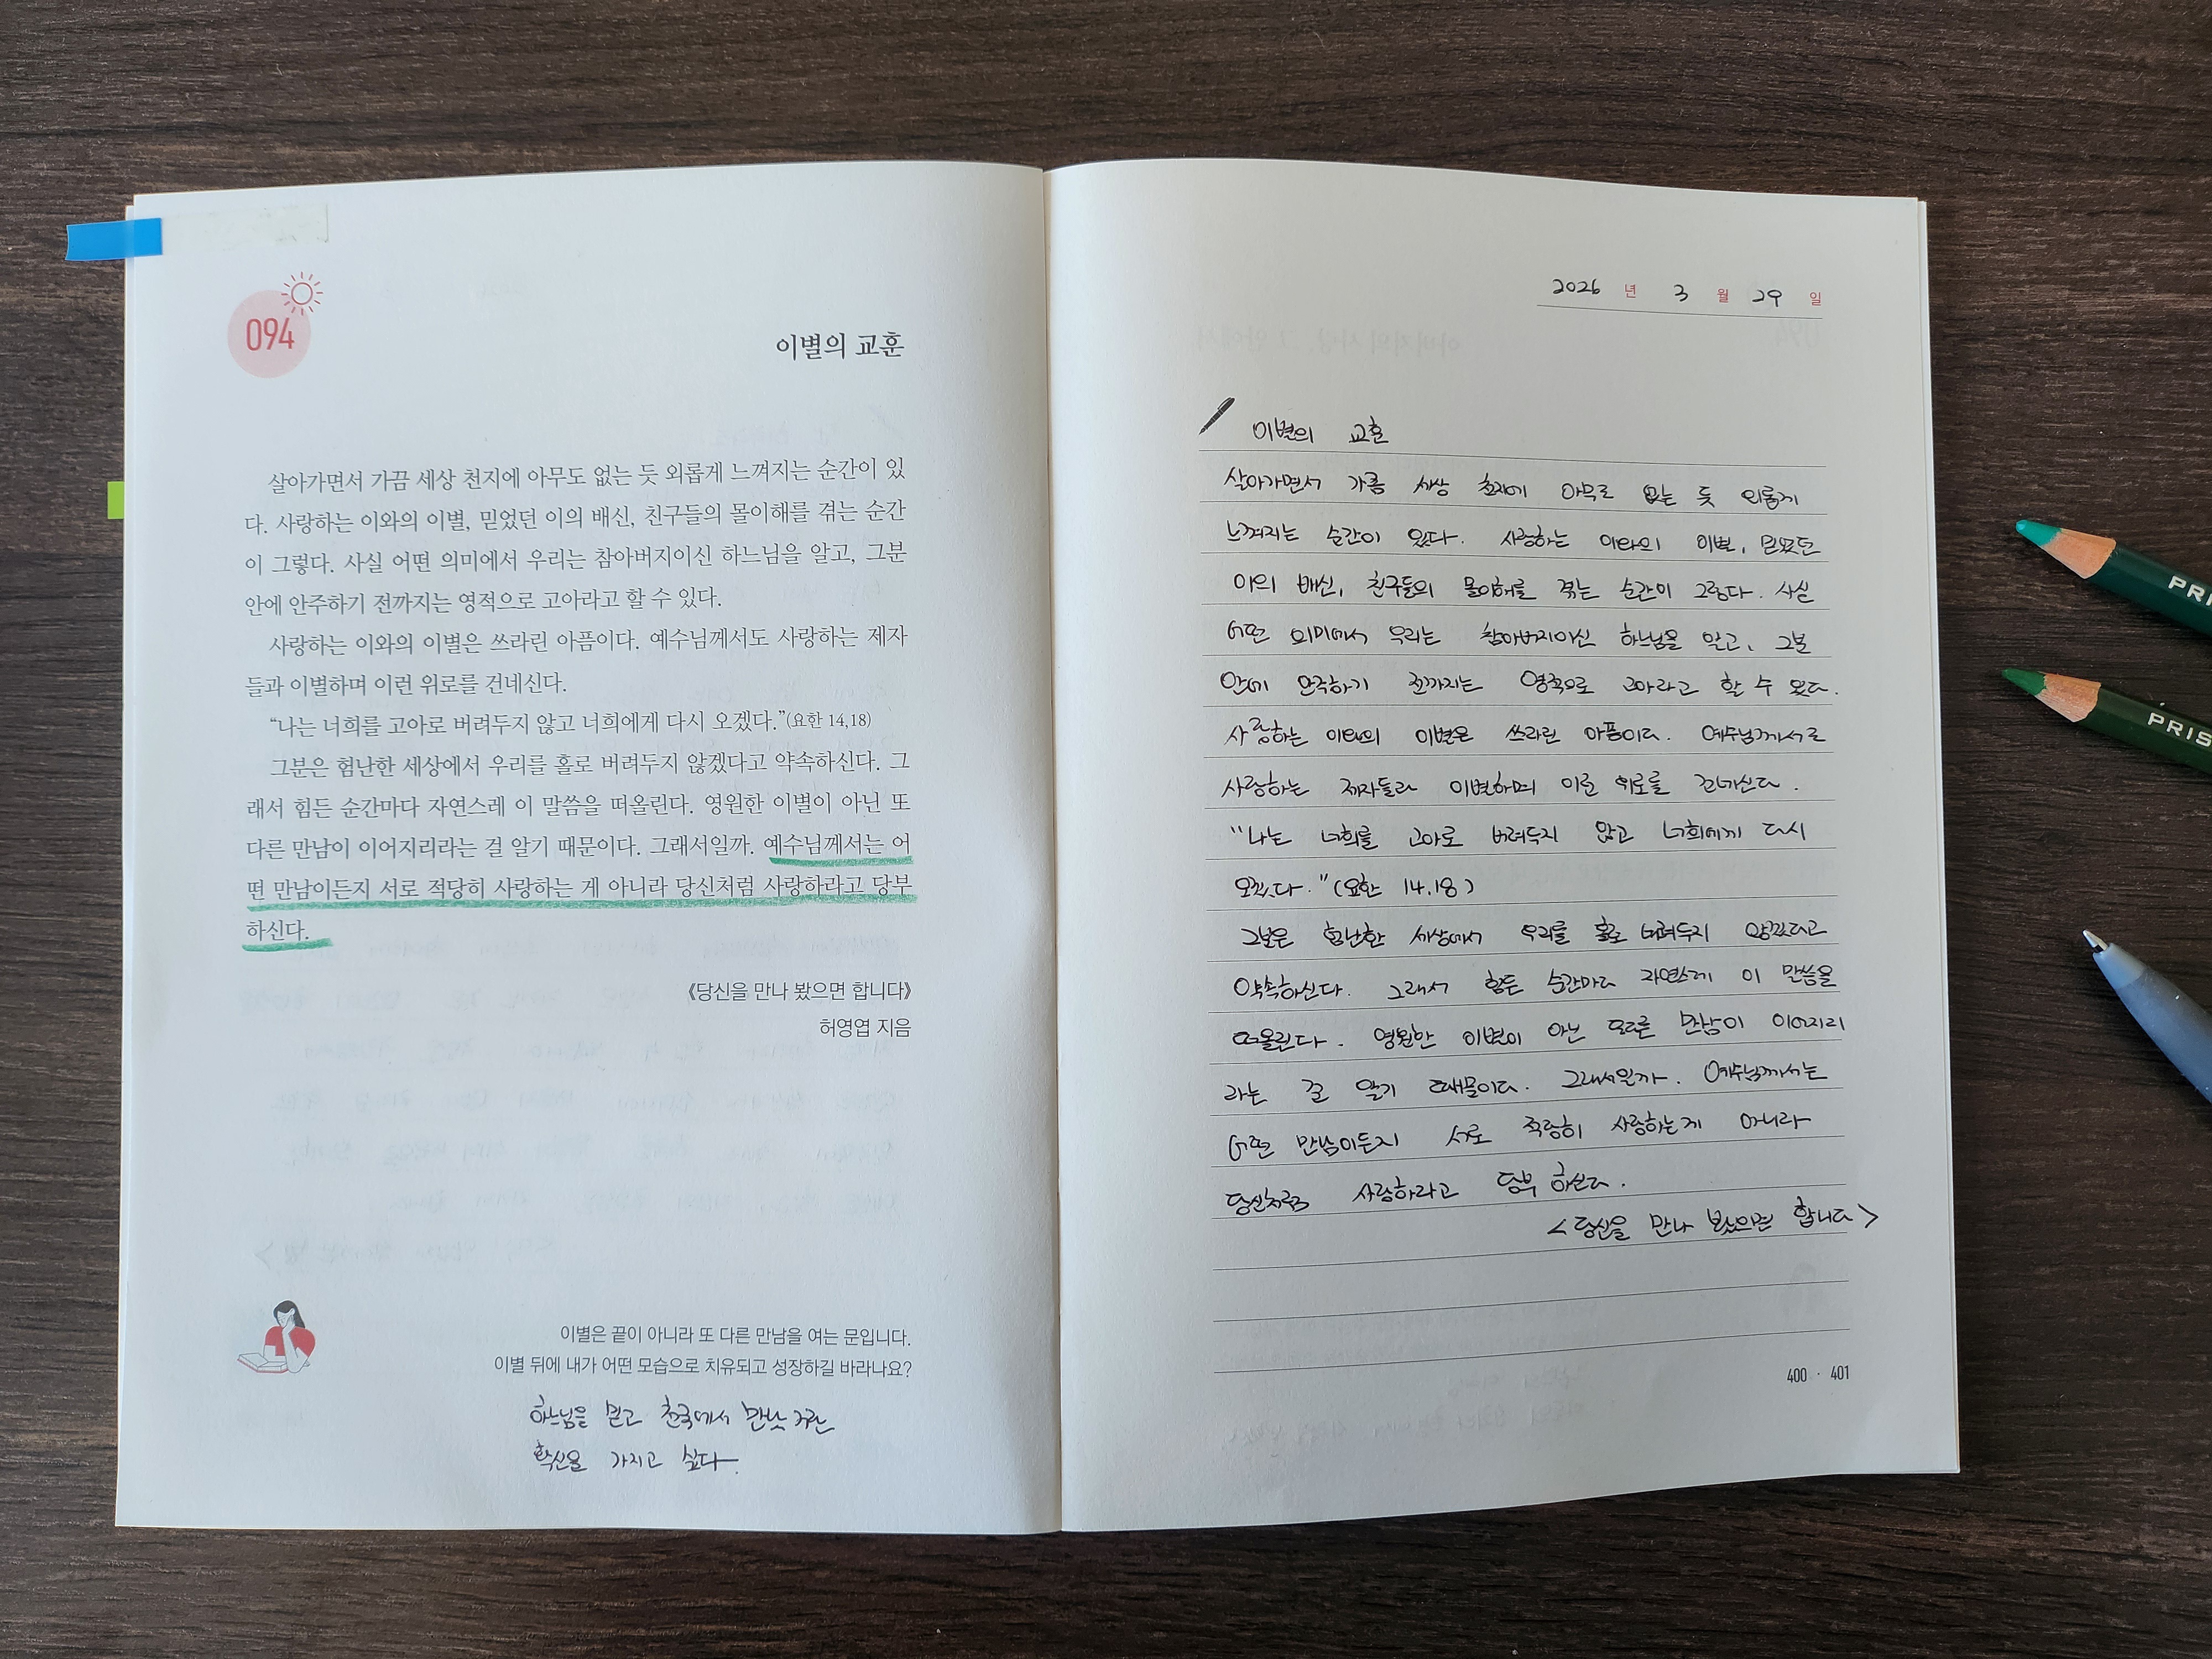 094
이별의 교훈
살아가면서 가끔 세상 천지에 아무도 없는 듯 외롭게 느껴지는 순간이 있
다. 사랑하는 이와의 이별, 믿었던 이의 배신, 친구들의 몰이해를 겪는 순간
이 그렇다. 사실 어떤 의미에서 우리는 참아버지이신 하느님을 알고, 그분
안에 안주하기 전까지는 영적으로 고아라고 할 수 있다.
사랑하는 이와의 이별은 쓰라린 아픔이다. 예수님께서도 사랑하는 제자
들과 이별하며 이런 위로를 건네신다.
“나는 너희를 고아로 버려두지 않고 너희에게 다시 오겠다.”(요한 14,18)
그분은 험난한 세상에서 우리를 홀로 버려두지 않겠다고 약속하신다. 그
래서 힘든 순간마다 자연스레 이 말씀을 떠올린다. 영원한 이별이 아닌 또
다른 만남이 이어지리라는 걸 알기 때문이다. 그래서일까. 예수님께서는 어
떤 만남이든지 서로 적당히 사랑하는 게 아니라 당신처럼 사랑하라고 당부
하신다.
《당신을 만나 봤으면 합니다》
허영엽 지음
이별은 끝이 아니라 또 다른 만남을 여는 문입니다.
이별 뒤에 내가 어떤 모습으로 치유되고 성장하길 바라나요?
하느님을 믿고 천국에서 만날 거란
확신을 가지고 싶다.
2026 년 3 월 29 일
이별의 교훈
살아가면서 가끔 세상 천지에 아무도 없는 듯 외롭게
느껴지는 순간이 있다. 사랑하는 이와의 이별, 믿었던
이의 배신, 친구들의 몰이해를 겪는 순간이 그렇다. 사실
어떤 의미에서 우리는 참아버지이신 하느님을 알고, 그분
안에 안주하기 전까지는 영적으로 고아라고 할 수 있다.
사랑하는 이와의 이별은 쓰라린 아픔이다. 예수님께서도
사랑하는 제자들과 이별하며 이런 위로를 건네신다.
"나는 너희를 고아로 버려두지 않고 너희에게 다시
오겠다."(요한 14.18)
그분은 험난한 세상에서 우리를 홀로 버려두지 않겠다고
약속하신다. 그래서 힘든 순간마다 자연스레 이 말씀을
떠올린다. 영원한 이별이 아닌 또다른 만남이 이어지리
라는 걸 알기 때문이다. 그래서일까. 예수님께서는
어떤 만남이든지 서로 적당히 사랑하는게 아니라
당신처럼 사랑하라고 당부 하신다.
<당신을 만나 봤으면 합니다>
400 · 401
PRI
PRIS